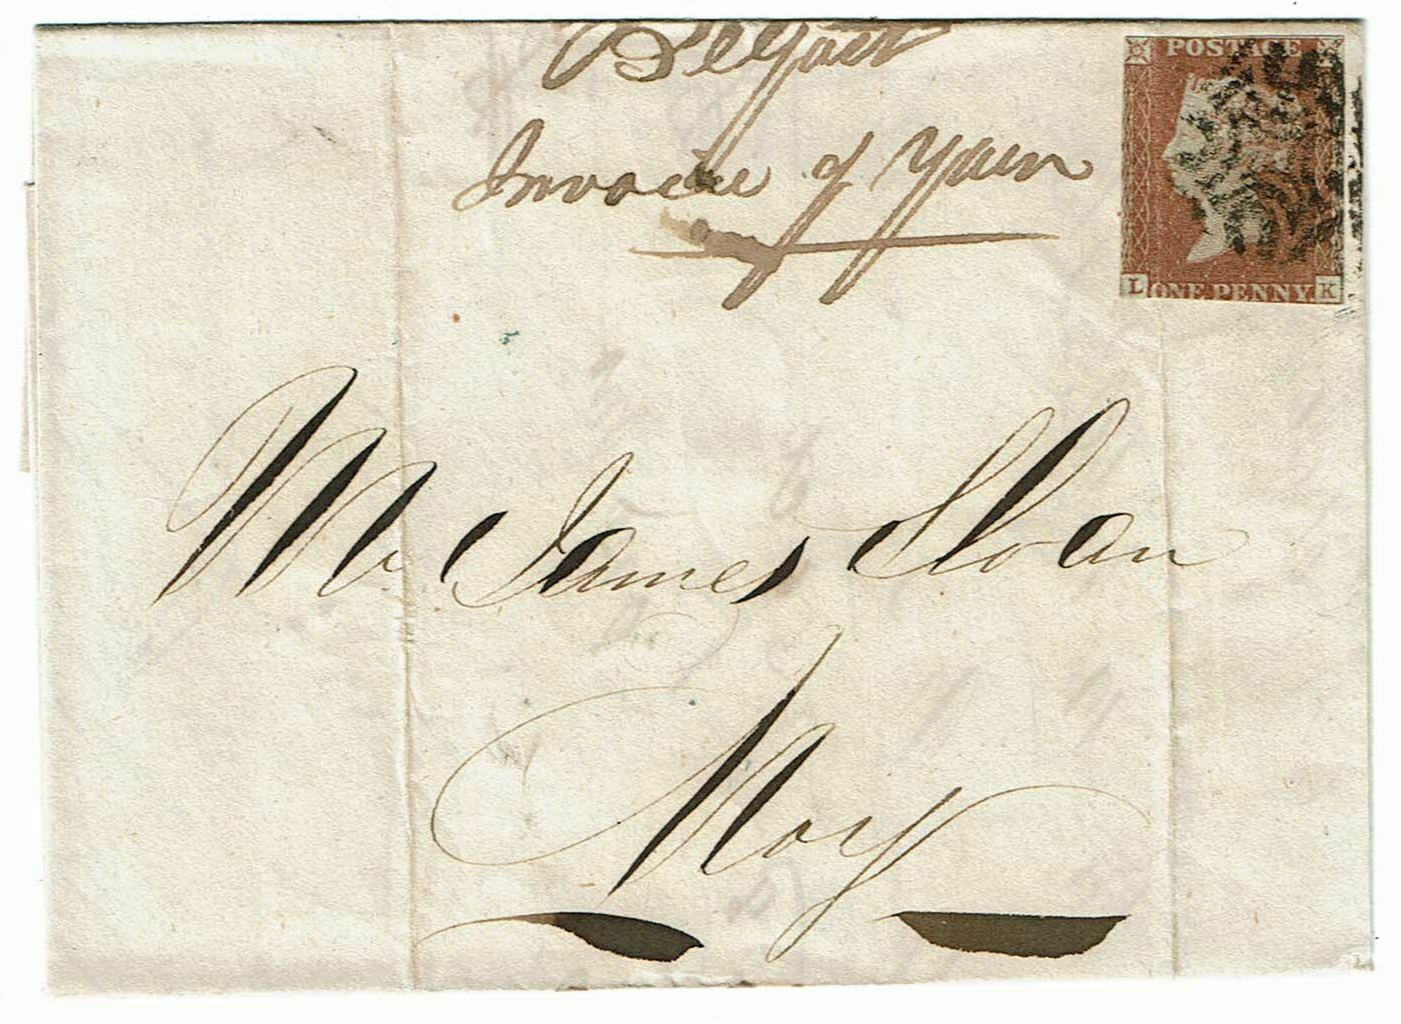 Belfast
Invoice of Yarn
POSTAGE
L ONE PENNY K
Mr James Sloan
Moy